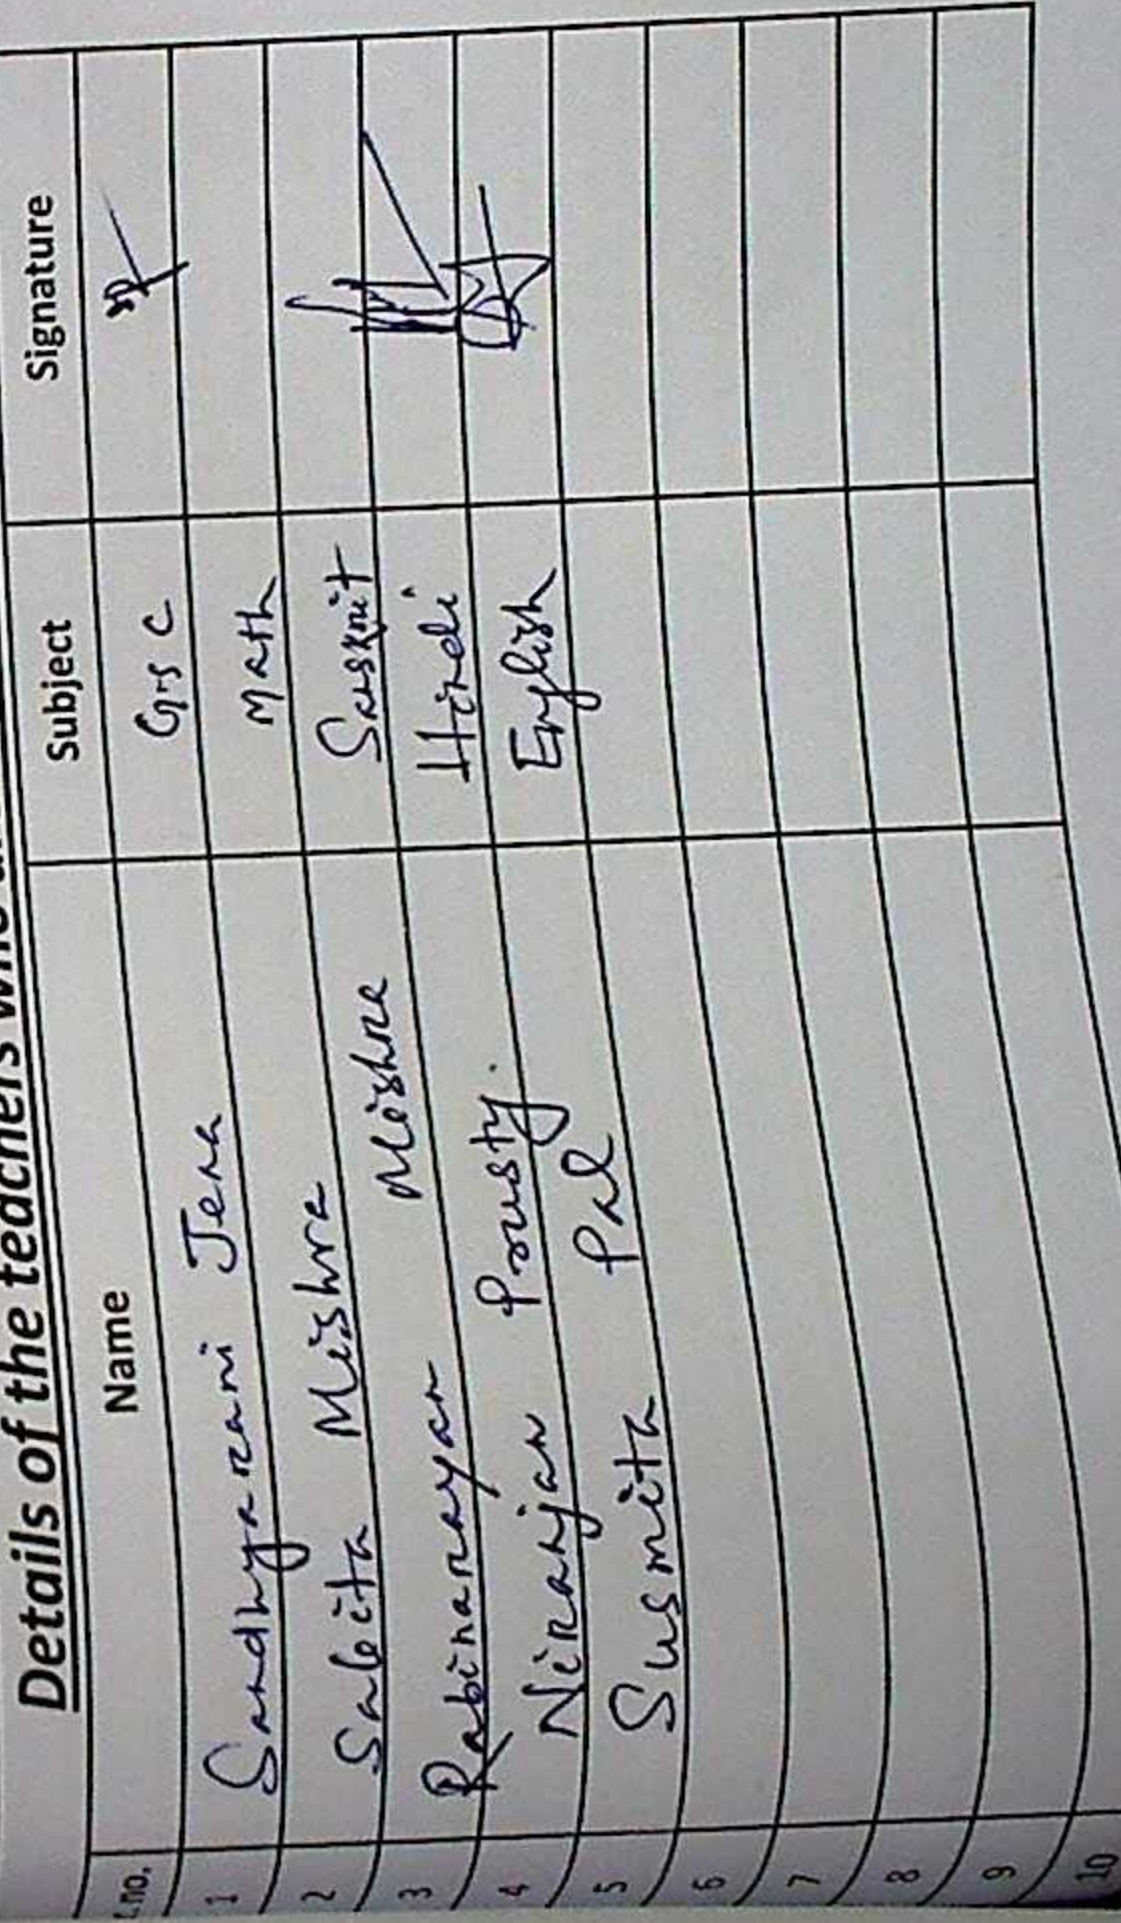 Details of the teachers who
S.no. Name Subject Signature
1 Sandhyarani Jena G.sc
2 Sabita Mishra Math
3 Rabinarayan Mishra Sanskrit
4 Niranjan Prusty. Hindi
5 Susmita Pal English
6
7
8
9
10